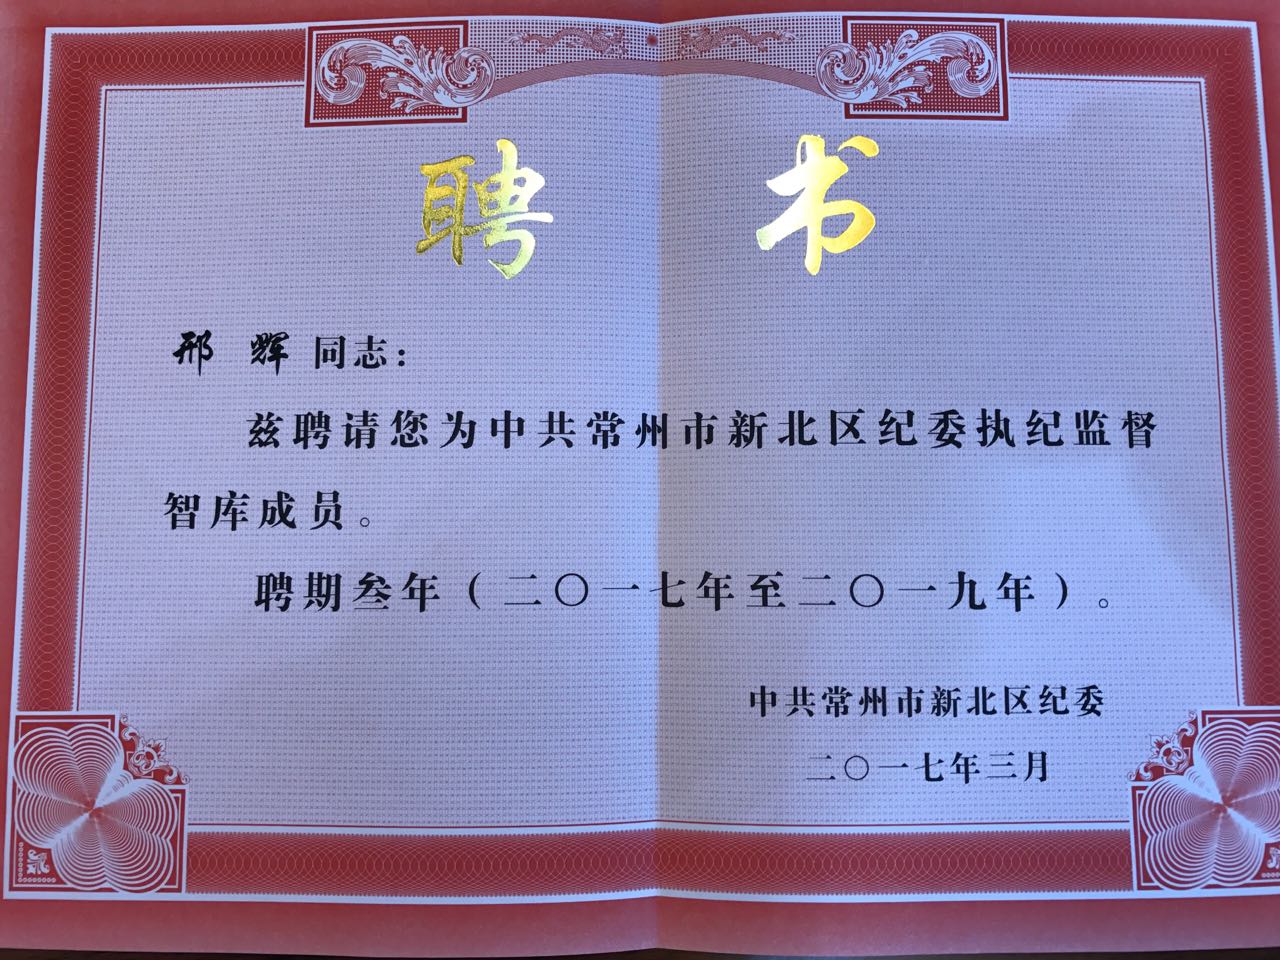 聘 书
邢 辉 同志：
兹聘请您为中共常州市新北区纪委执纪监督
智库成员。
聘期叁年（二〇一七年至二〇一九年）。
中共常州市新北区纪委
二〇一七年三月